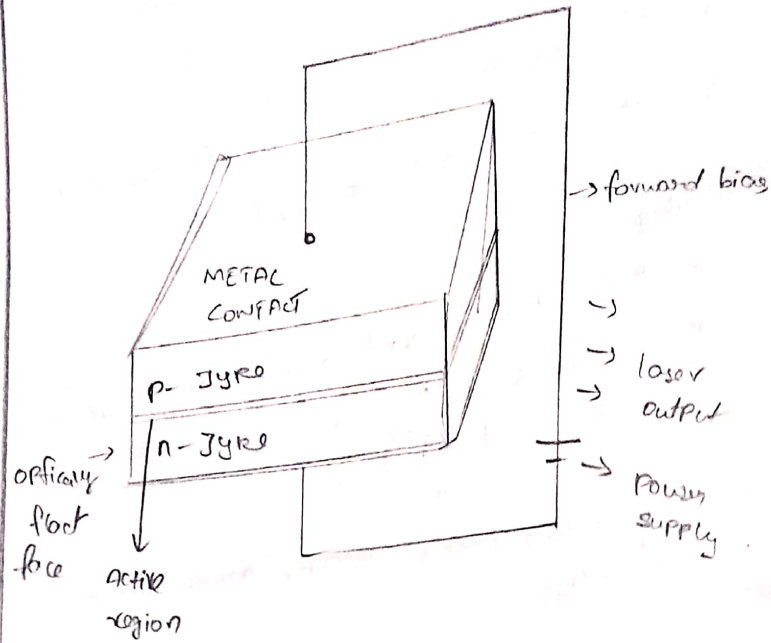 → forward bias
METAL
CONTACT
p- Type
n- Type
→ laser
output
→ Power
supply.
optically
flat
face
Active
region